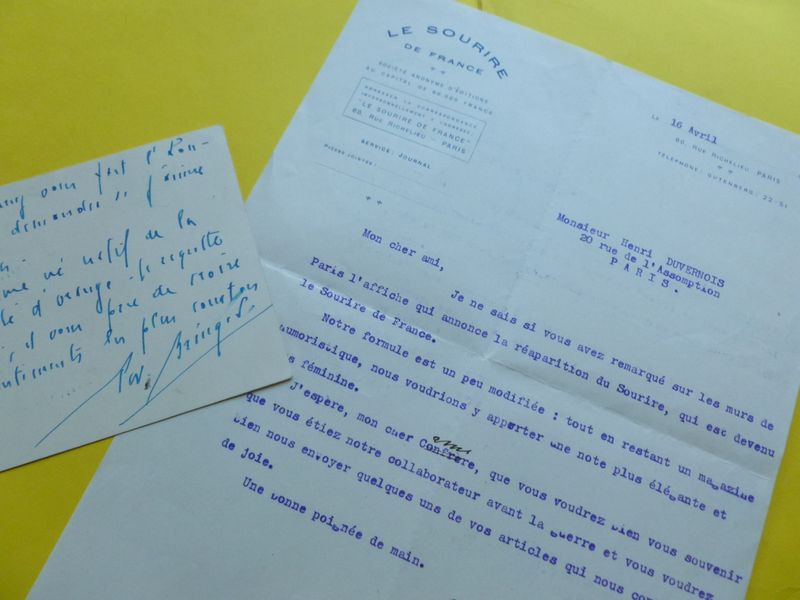 LE SOURIRE
DE FRANCE
SOCIÉTÉ ANONYME D'ÉDITIONS
AU CAPITOL DE 50.000 FRANCS
ADRESSER LA CORRESPONDANCE
IMPERSONNELLEMENT À L'ADRESSE:
"LE SOURIRE DE FRANCE"
60, RUE RICHELIEU - PARIS
SERVICE: JOURNAL
PIÈCES JOINTES:
LE 16 Avril
60, RUE RICHELIEU PARIS
TÉLÉPHONE: GUTENBERG: 22-51
Monsieur Henri DUVERNOIS
20 rue de l'Assomption
PARIS.
Mon cher ami,
Je ne sais si vous avez remarqué sur les murs de
Paris l'affiche qui annonce la réaparition du Sourire, qui est devenu
le Sourire de France.
Notre formule est un peu modifiée : tout en restant un magazine
umoristique, nous voudrions y apporter une note plus élégante et
s féminine.
J'espère, mon cher Confrère, ami que vous voudrez bien vous souvenir
que vous étiez notre collaborateur avant la guerre et vous voudrez
bien nous envoyer quelques uns de vos articles qui nous com
de joie.
Une bonne poignée de main.
vous fait l'hon-
demander
né natif de la
d'orange
il vous prie de croire
en plus